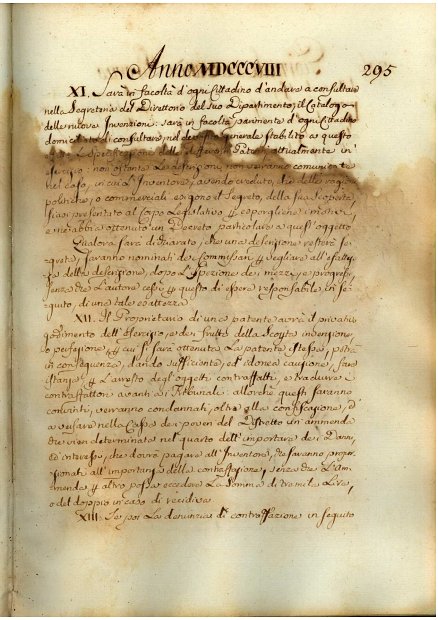 Anno MDCCCVIII
295
XI. Sarà in facoltà d'ogni Cittadino d'andare a consultare
nella Segreteria del Direttorio del suo Dipartimento il Catalogo
delle nuove Invenzioni: sarà in facoltà parimente d'ogni Cittadino
domiciliato di consultare, nel generale stabilito a questo
attualmente in
esercizio: non ostante Le descrizioni non verranno comunicate
nel caso, in cui L'Inventore, avendo creduto, che delle ragioni
politiche, o commerciali esigono il Segreto, della sua Scoperta,
siasi presentato al Corpo Legislativo esporgliene i motivi,
e ne abbia ottenuto un Decreto particolare a quest'oggetto
Qualora sarà dichiarato, che una descrizione resterà se-
greta, saranno nominati de' Commissari vegliare all'esattez-
za della descrizione, dopo L'Ispezione dei mezzi, e progressi,
senza che L'autore cessi questo di essere responsabile in se-
guito, di una tale esattezza.
XII. Il Proprietario di una patente avrà il privativo
godimento dell'esercizio, e dei frutti della Scoperta, invenzione,
o perfezione, cui sarà ottenuta La patente istessa, potrà
in conseguenza, dando sufficiente, ed idonea cauzione, fare
istanza L'arresto degl'oggetti contraffatti, e tradurre i
contraffattori avanti ai Tribunali: allorchè questi saranno
convinti, verranno condannati, oltre alla confiscazione, a
versare nella Cassa dei poveri del Distretto un'ammenda
che vien determinata nel quarto dell'importare dei Danni,
ed interessi, che dovrà pagare all'Inventore, che saranno propor-
zionati all'importanza della contraffazione, senza che L'am-
menda altro possa eccedere La Somma di tremila Lire,
o del doppio in caso di recidiva.
XIII. Se poi La denunzia di contraffazione in seguito